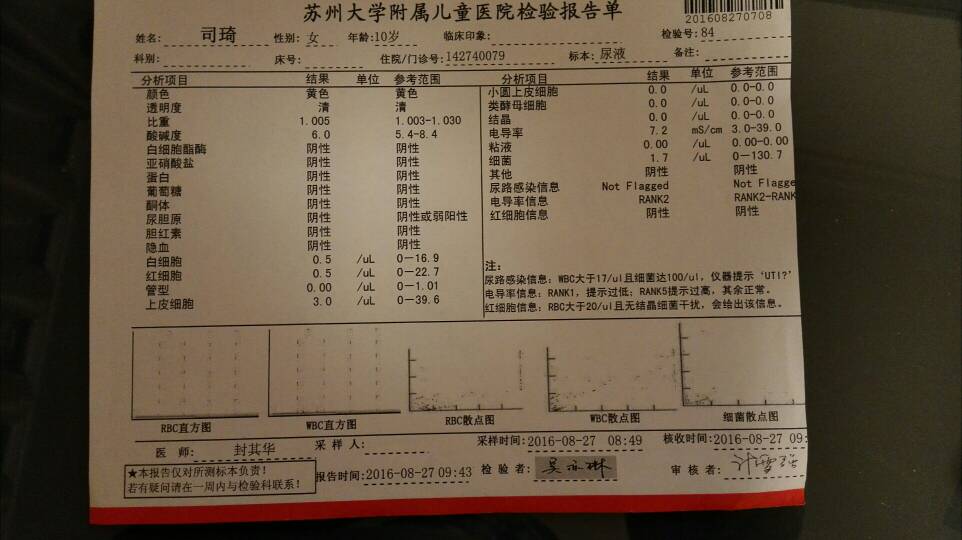 苏州大学附属儿童医院检验报告单
201608270708
姓名: 司琦 性别: 女 年龄:10岁 临床印象: 检验号: 84
科别: 床号: 住院/门诊号: 142740079 标本: 尿液 备注:
分析项目 结果 单位 参考范围
颜色 黄色 黄色
透明度 清 清
比重 1.005 1.003-1.030
酸碱度 6.0 5.4-8.4
白细胞酯酶 阴性 阴性
亚硝酸盐 阴性 阴性
蛋白 阴性 阴性
葡萄糖 阴性 阴性
酮体 阴性 阴性
尿胆原 阴性 阴性或弱阳性
胆红素 阴性 阴性
隐血 阴性 阴性
白细胞 0.5 /uL 0-16.9
红细胞 0.5 /uL 0-22.7
管型 0.00 /uL 0-1.01
上皮细胞 3.0 /uL 0-39.6
分析项目 结果 单位 参考范围
小圆上皮细胞 0.0 /uL 0.0-0.0
类酵母细胞 0.0 /uL 0.0-0.0
结晶 0.0 /uL 0.0-0.0
电导率 7.2 mS/cm 3.0-39.0
粘液 0.00 /uL 0.00-0.00
细菌 1.7 /uL 0-130.7
其他 阴性 阴性
尿路感染信息 Not Flagged Not Flagge
电导率信息 RANK2 RANK2-RANK
红细胞信息 阴性 阴性
注:
尿路感染信息: WBC大于17/ul且细菌达100/ul, 仪器提示‘UTI?’
电导率信息: RANK1, 提示过低; RANK5提示过高, 其余正常。
红细胞信息: RBC大于20/ul且无结晶细菌干扰, 会给出该信息。
RBC直方图 WBC直方图 RBC散点图 WBC散点图 细菌散点图
医 师: 封其华 采 样 人: 采样时间:2016-08-27 08:49 核收时间:2016-08-27 09:
★本报告仅对所测标本负责!
若有疑问请在一周内与检验科联系!
报告时间:2016-08-27 09:43 检 验 者: 吴亦琳 审 核 者: